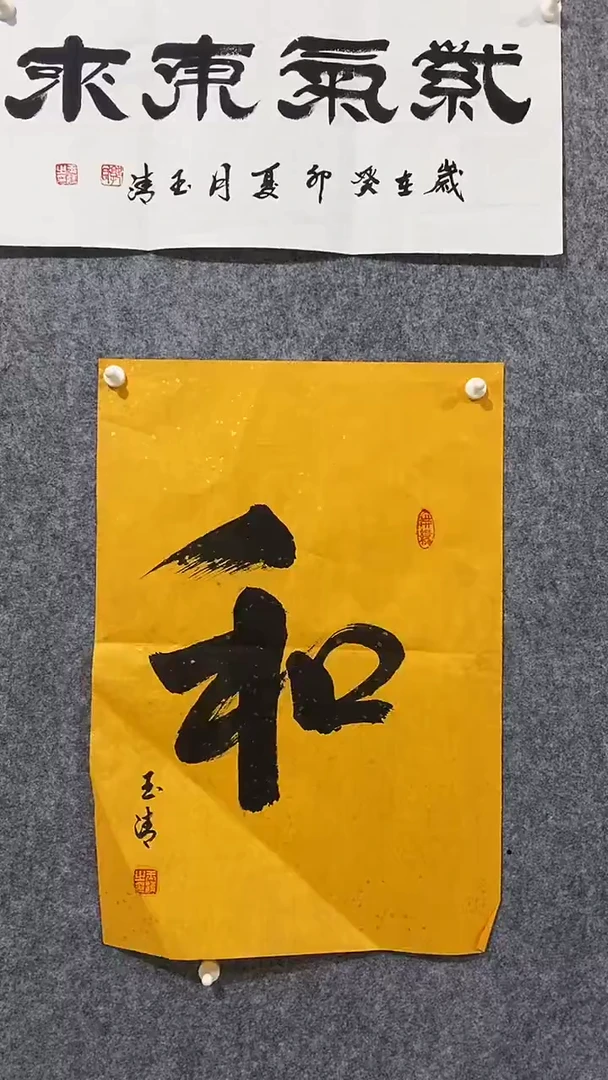 紫氣東來
歲在癸卯夏月玉清
和
玉清